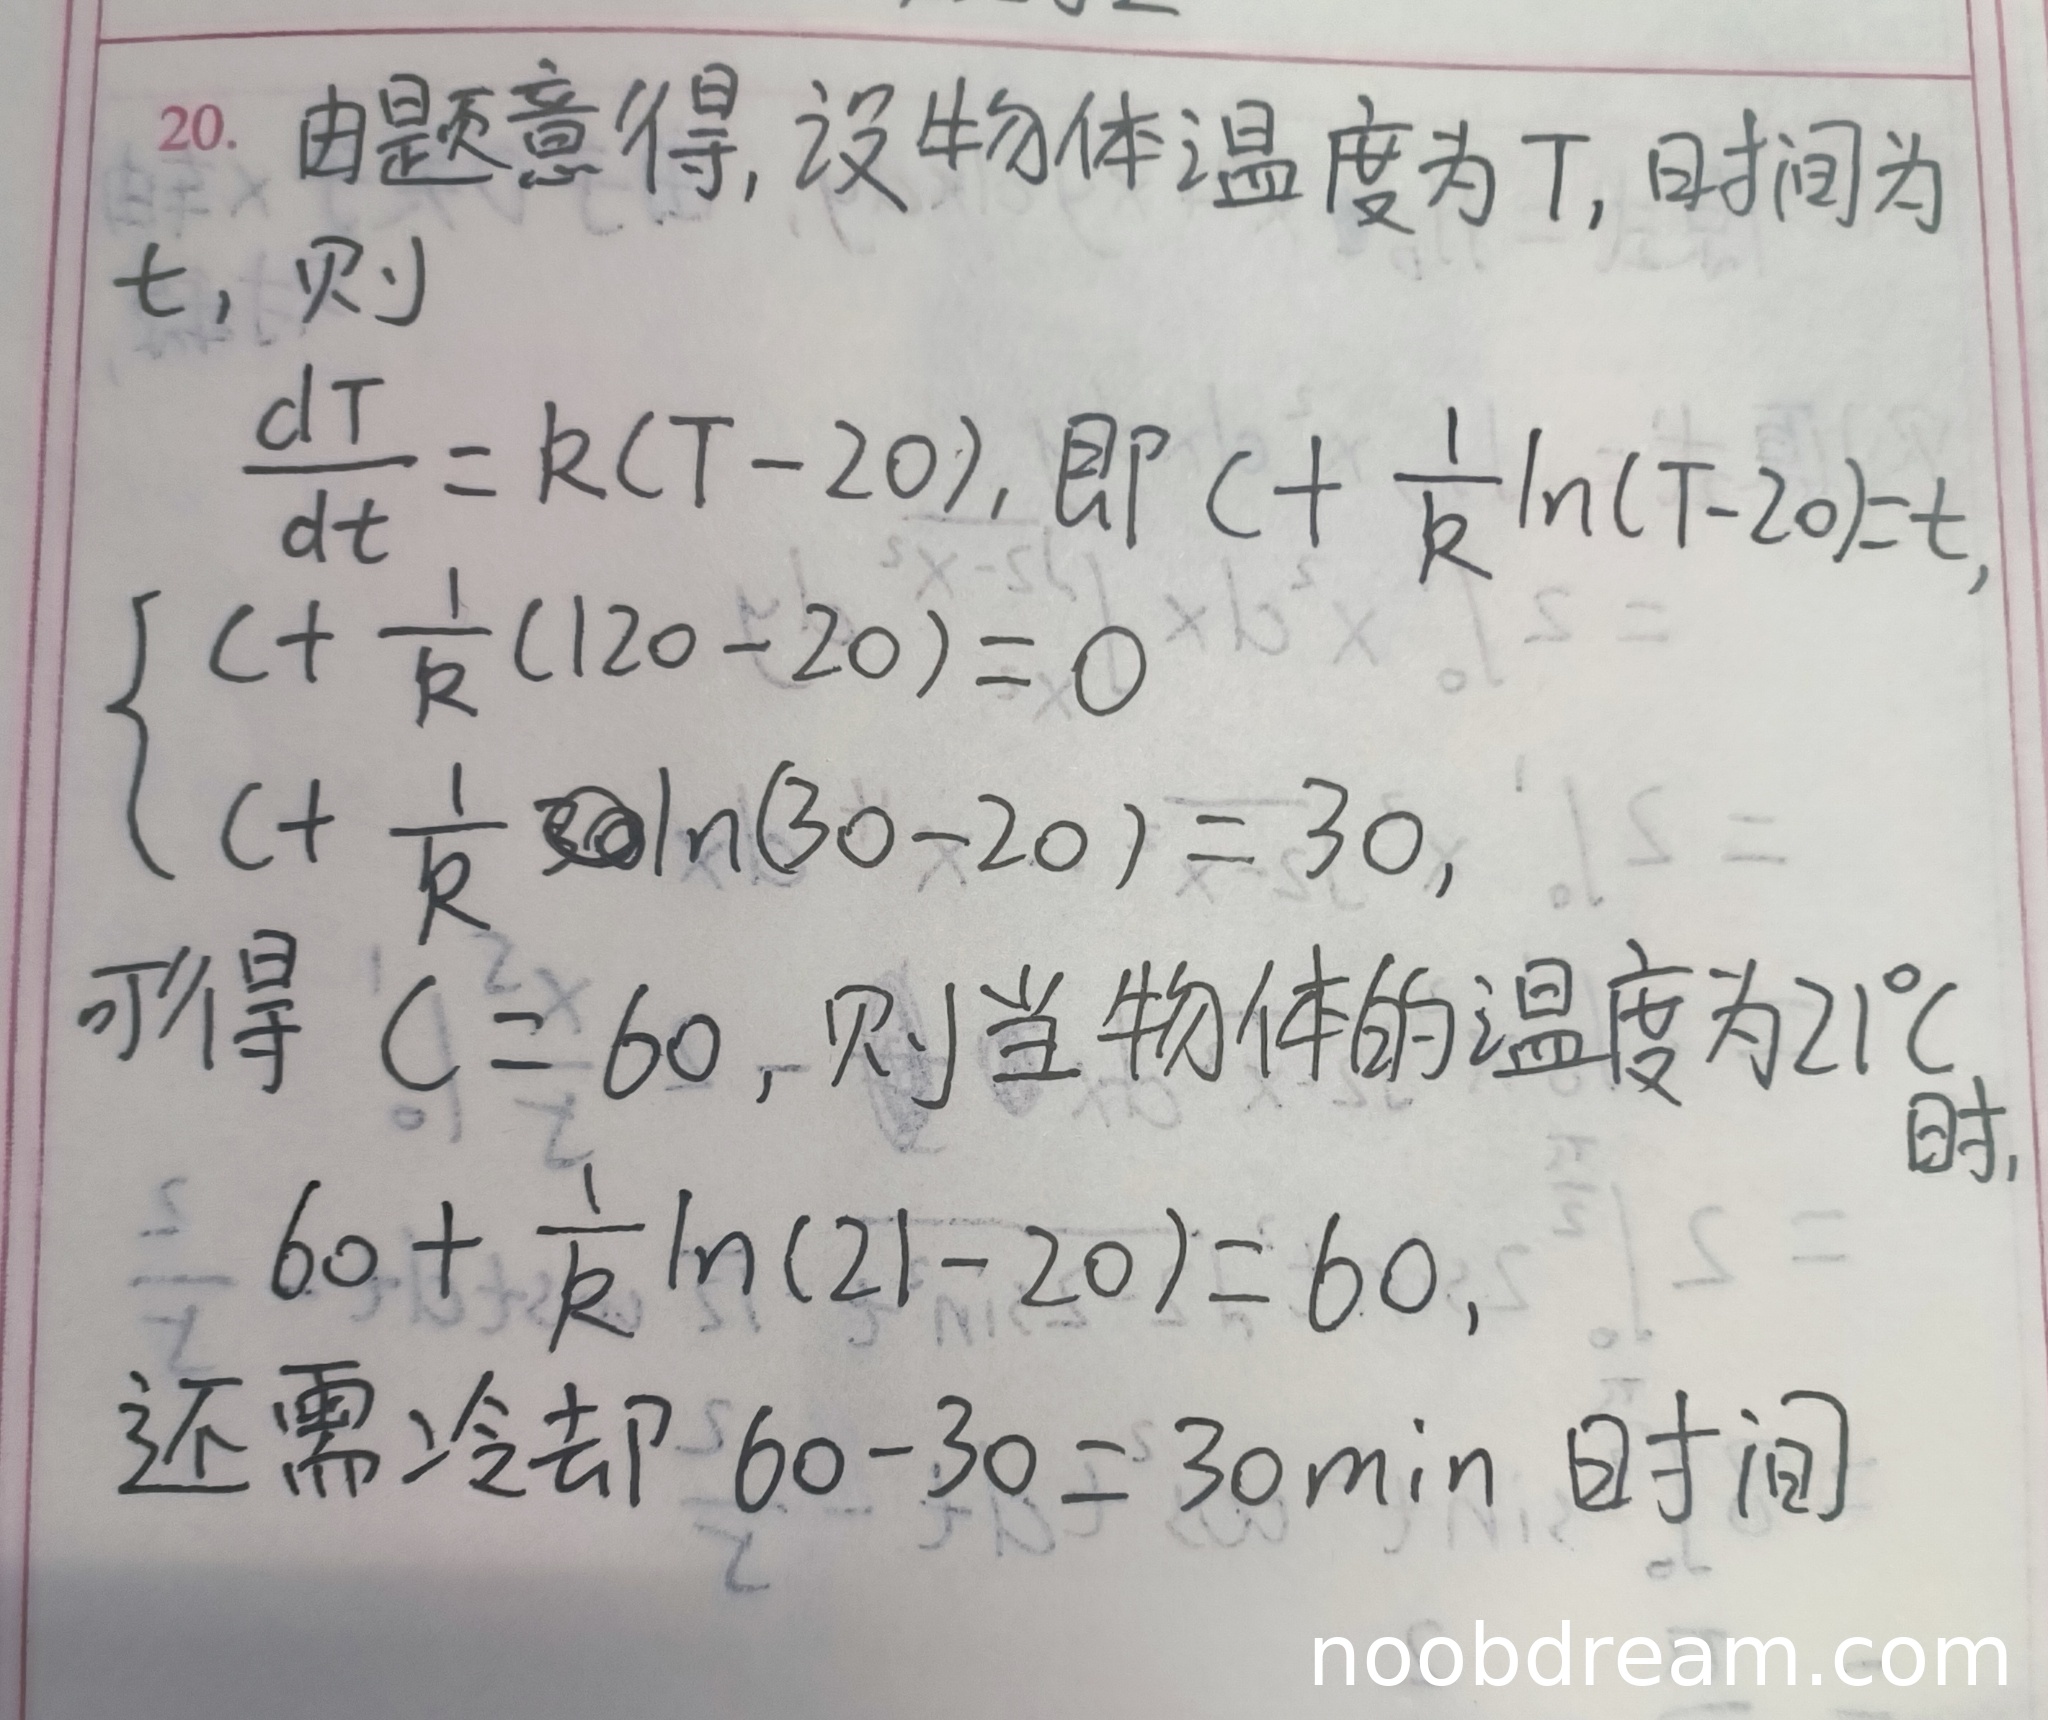 20. 由题意得,设物体温度为T,时间为
t,则
dT/dt = k(T-20),即 C + 1/k ln(T-20)=t,
{ C + 1/k (120-20) = 0
C + 1/k ln(30-20) = 30,
可得 C = 60,则当物体的温度为21°C
时,
60 + 1/k ln(21-20) = 60,
还需冷却 60-30=30min 时间
noobdream.com